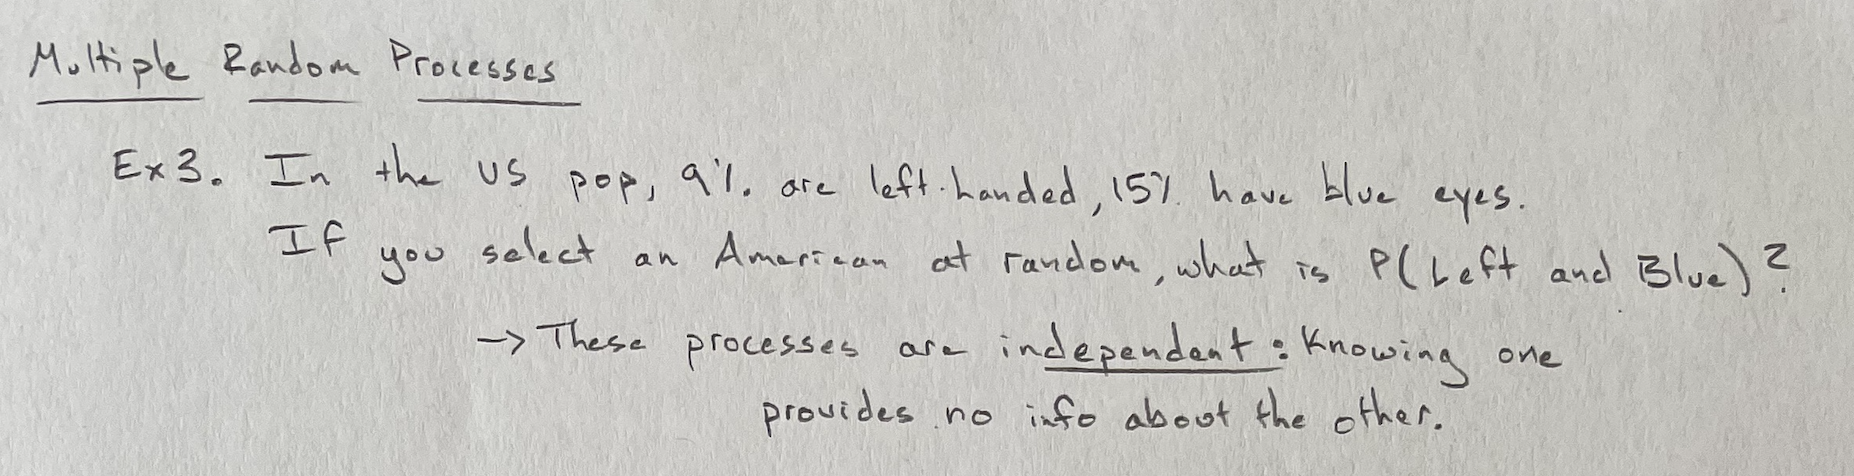 Multiple Random Processes
Ex 3. In the US pop, 9%. are left-handed, 15% have blue eyes.
If you select an American at random, what is P(Left and Blue)?
-> These processes are independent: Knowing one
provides no info about the other.